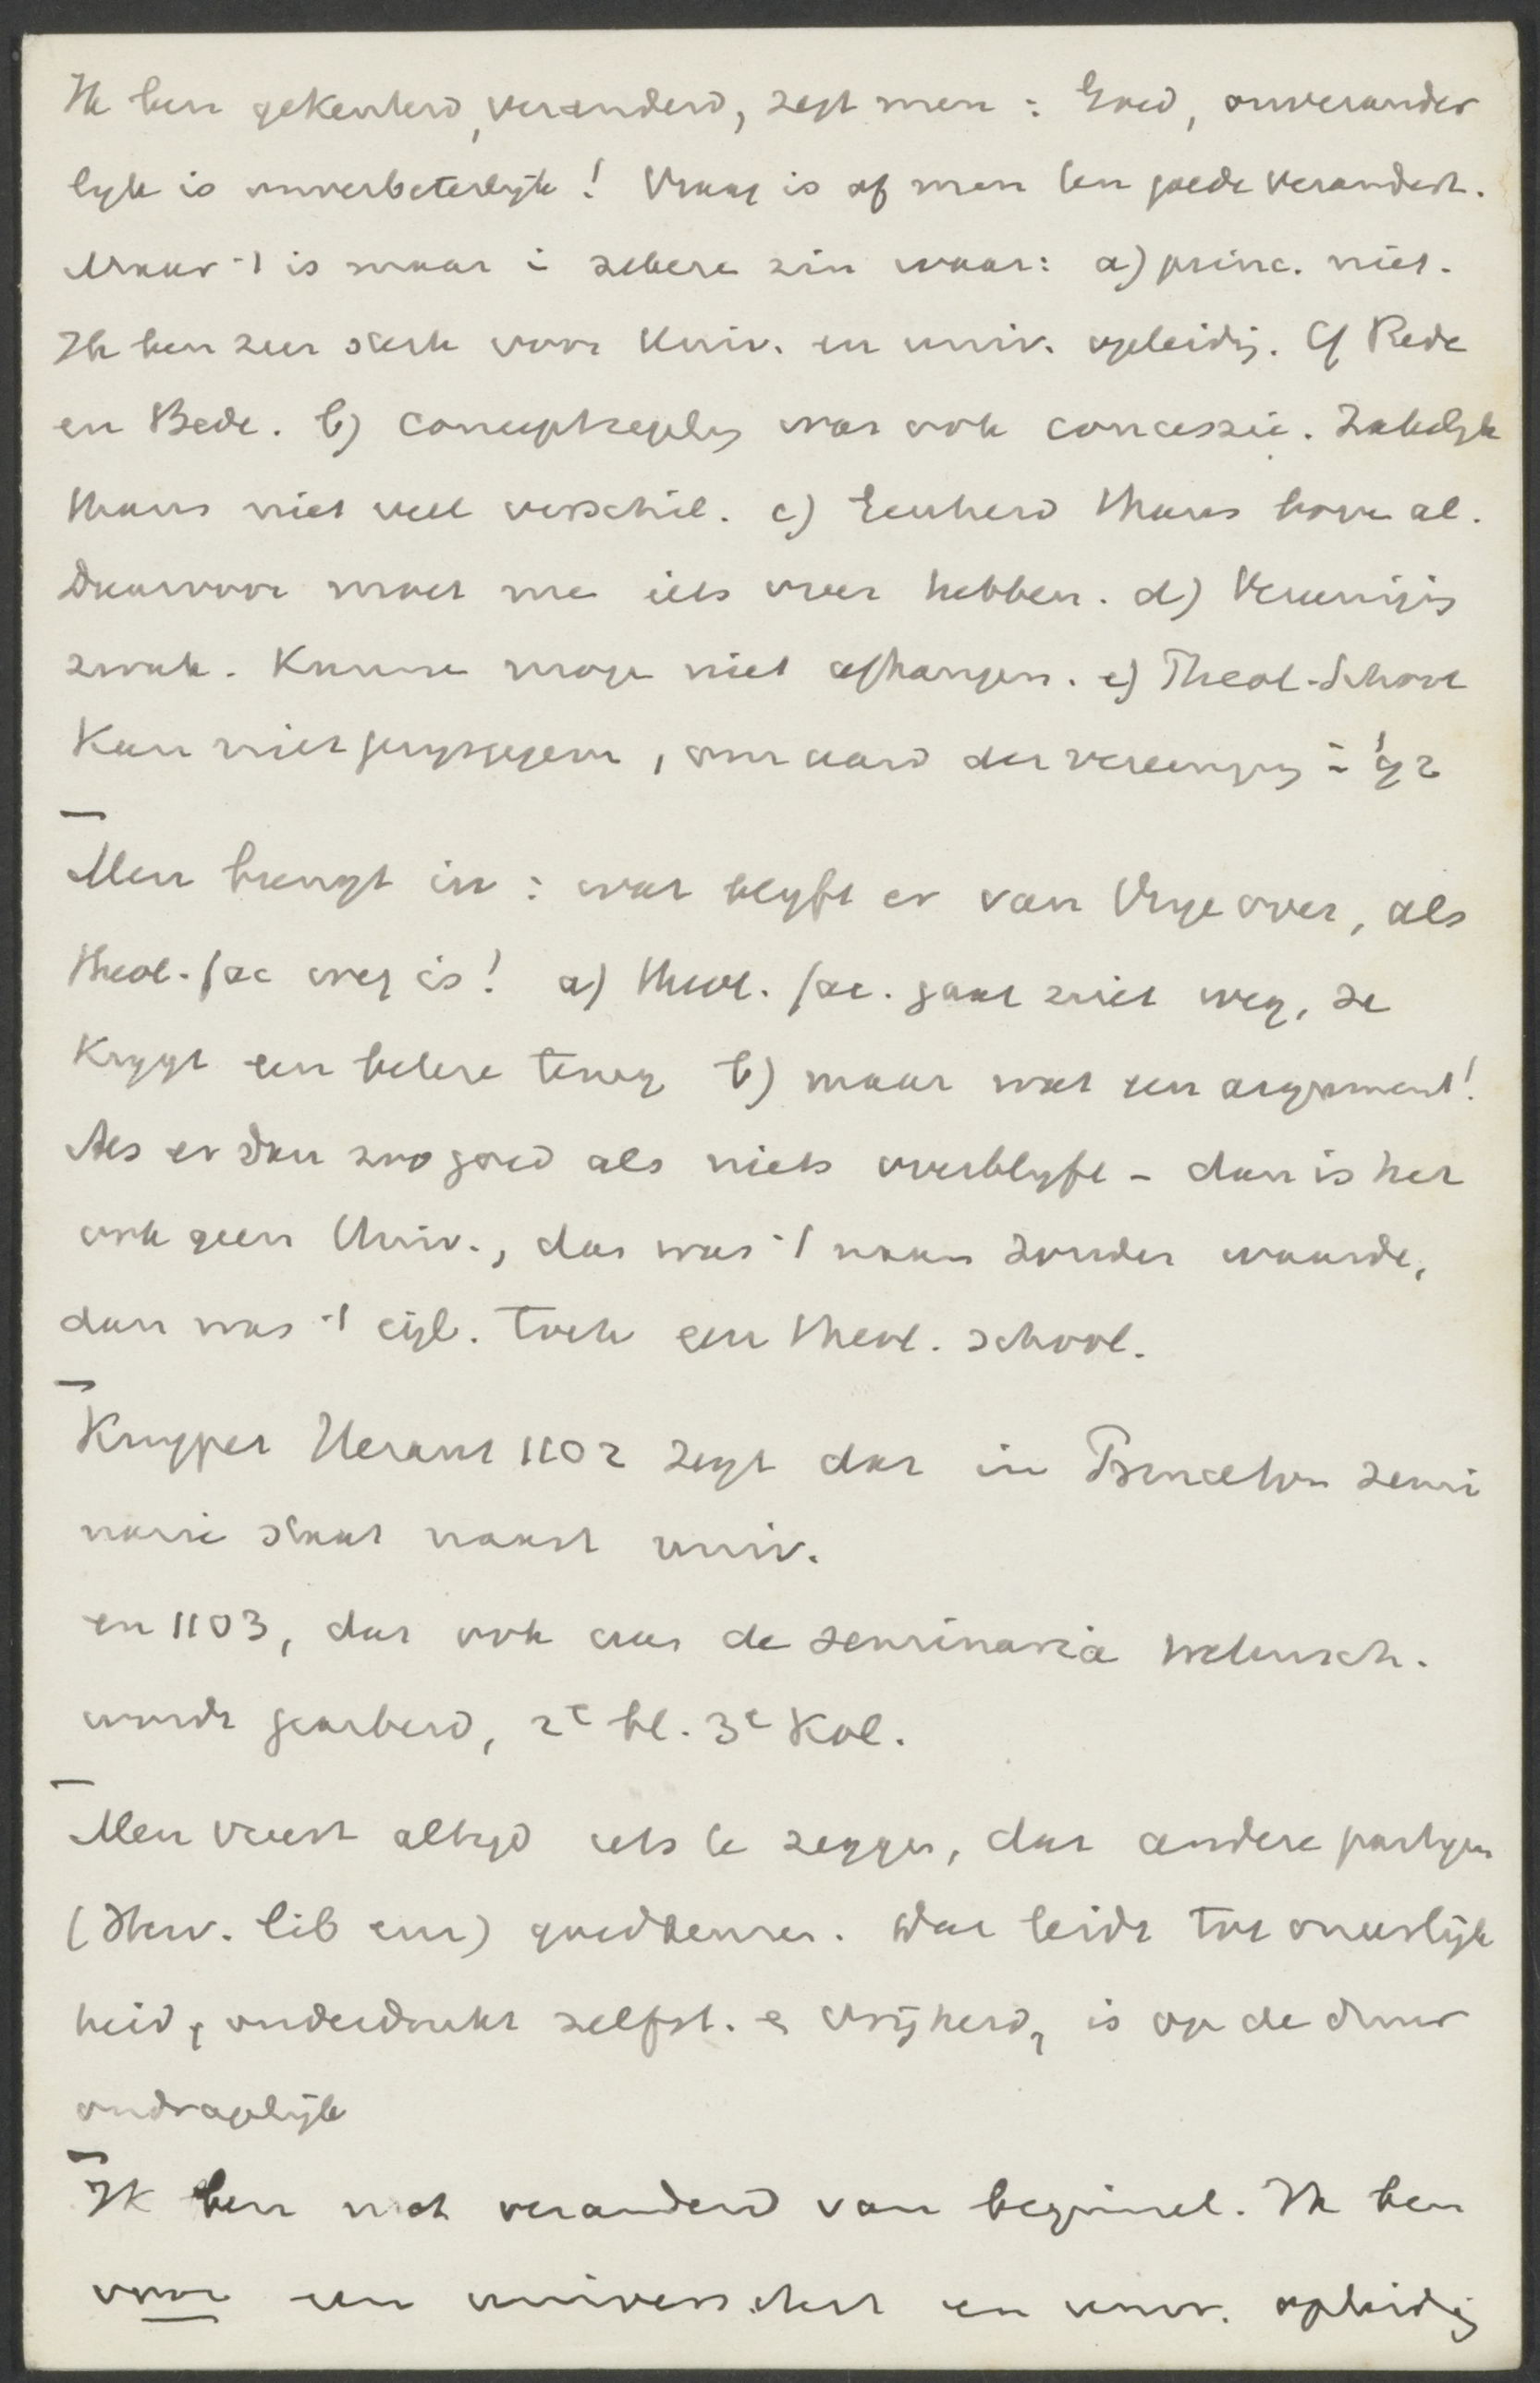 Ik ben gekenterd, veranderd, zegt men: Goed, onverander
lyk is onverbeterlyk! Vraag is of men ten goede verandert.
Maar 't is maar i zekere zin waar: a) princ. niet.
Ik ben zeer sterk voor Univ. en univ. opleidig. Cf Rede
en Bede. b) Conceptregelg was ook concessie. Zakelyk
thans niet veel verschil. c) Eenheid thans bove al.
Daarvoor moet me iets over hebben. d) Vereenigig
zwak. Kunne moge niet afhangen. e) Theol. School
kan niet prysgegeve, om aard der vereenigig
Men brengt in: wat blyft er van Vrye over, als
theol. fac weg is! a) theol. fac. gaat niet weg, ze
krygt een betere terug b) maar wat een argument!
Als er dan zoo goed als niets overblyft - dan is het
ook geen Univ., dan was 't naam zonder waarde,
dan was 't eigl. toch een theol. school.
Kuyper Heraut 1102 zegt dat in Princeton semi
narie staat naast univ.
en 1103, dat ook aan de seminaria wetensch.
wordt gearbeid, 2e bl. 3e kol.
Men vreest altyd iets te zeggen, dat andere partyen
(Herv. lib enz) goedkeuren. Dat leidt tot oneerlijk
heid, onderdrukt zelfst. e vrijheid, is op de duur
ondragelijk
Ik ben niet veranderd van beginsel. Ik ben
voor een universiteit en univ. opleidig